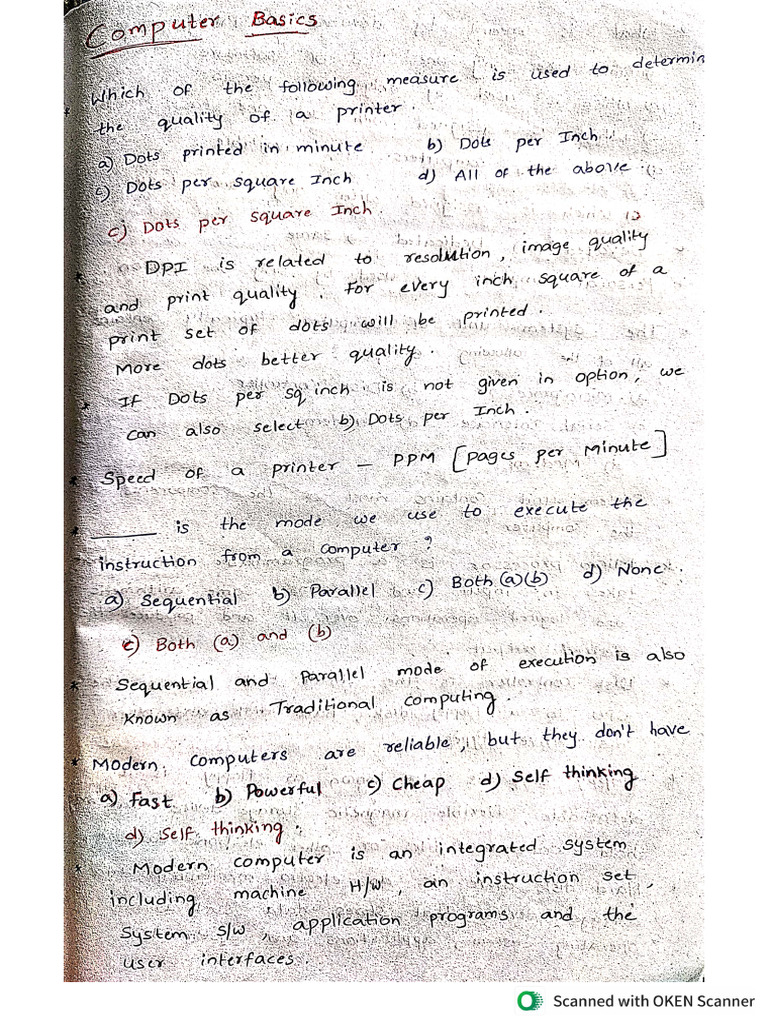 Computer Basics
* Which of the following measure is used to determin
the quality of a printer.
a) Dots printed in minute b) Dots per Inch
c) Dots per square Inch d) All of the above
c) Dots per square Inch.
* DPI is related to resolution, image quality
and print quality. For every inch square of a
print set of dots will be printed.
More dots better quality.
* If Dots per sq inch is not given in option, we
can also select b) Dots per Inch.
* Speed of a printer – PPM [Pages per Minute]
* ______ is the mode we use to execute the
instruction from a computer?
a) Sequential b) Parallel c) Both (a)(b) d) None.
c) Both (a) and (b)
* Sequential and Parallel mode of execution is also
known as Traditional computing.
* Modern computers are reliable, but they don't have
a) Fast b) Powerful c) Cheap d) Self thinking
d) Self thinking.
* Modern computer is an integrated system
including machine H/w, an instruction set,
System s/w, application programs and the
user interfaces.
Scanned with OKEN Scanner